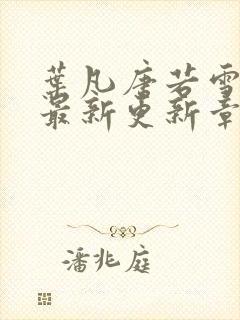 葉凡唐若雪
最新更新章
潘兆庭